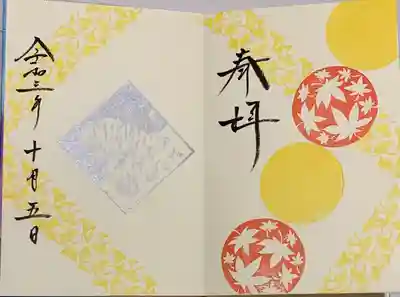 奉拝
令和三年十月五日